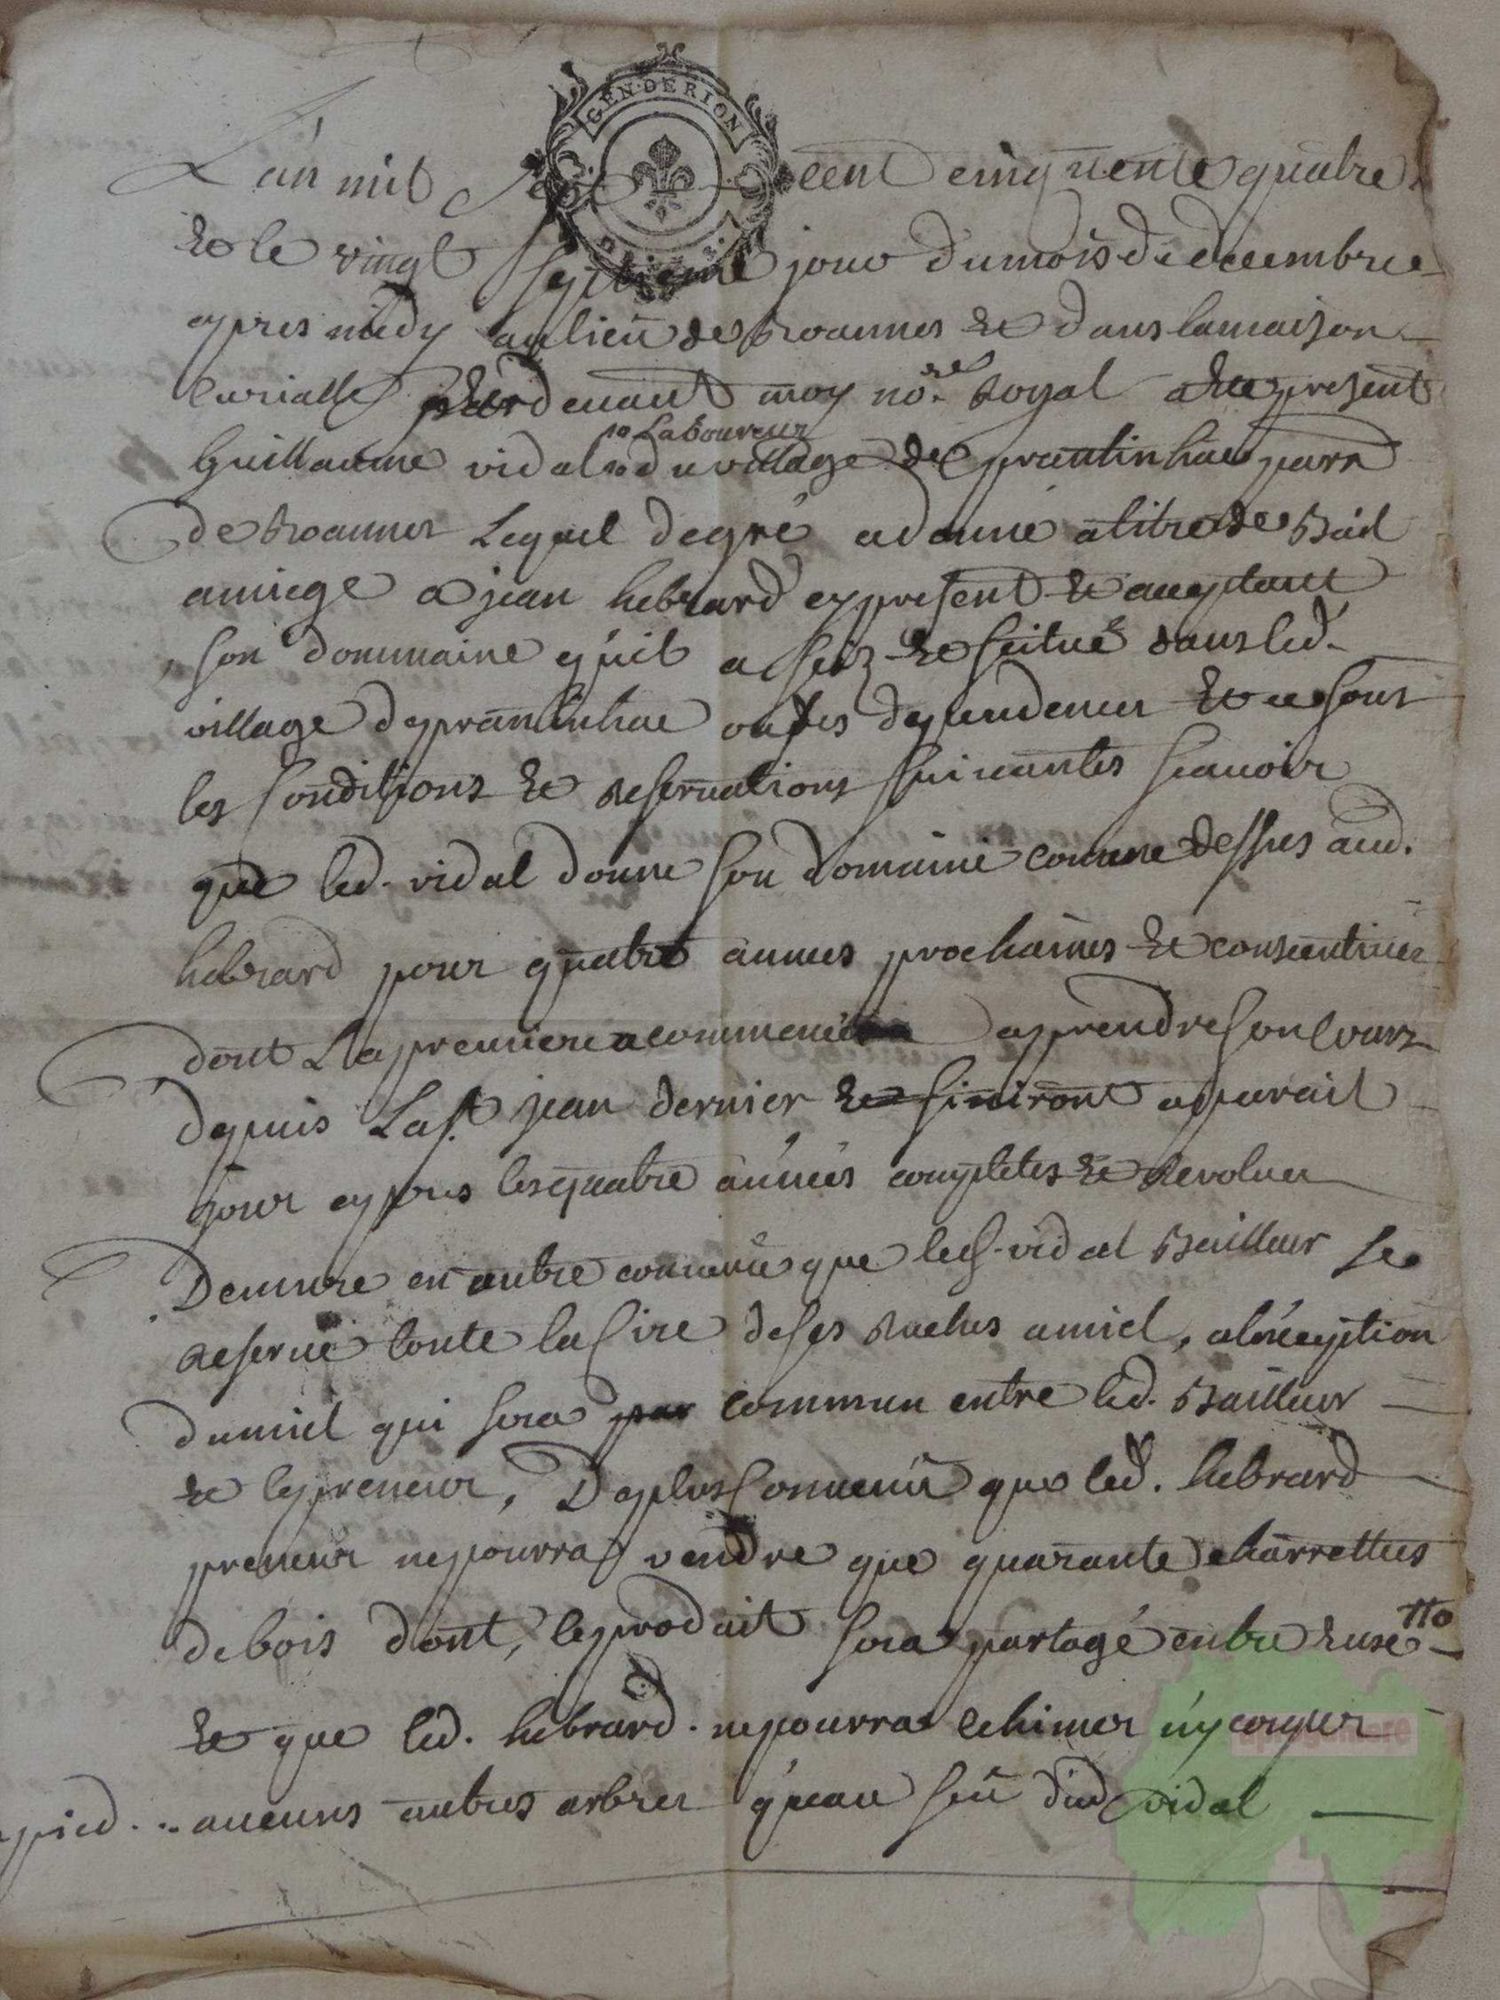 GEN. DE RION
L'an mil sept cent cinquente quatre
& le vingt septieme jour du mois de decembre
apres midy au lieu de Roannes & dans la maison
curialle pardevant moy no.re Royal a este present
Laboureur
Guillaume vidal du village de prantinhac parr
de Roannes Lequel de gré a donné a titre de Bail
amiege a jean hebrard ey present & aceptant
son dommaine qu'il a seiz & scitué dans led.
village de prantinhac ou ses dependences & ce sous
les conditions & reservations suivantes scavoir
que led. vidal donne son domaine comme dessus aud.
hebrard pour quatre années prochaines & consecutives
dont La premiere a commencé a prendre son cours
depuis La St jean dernier & finiront a pareil
jour apres les quatre années completes & revolues
Demure en outre convenu que led. vidal Bailleur se
reserve toute la cire de ses ruches a miel, a l'exeption
du miel qui sera commun entre led. Bailleur
& le preneur, De plus convenu que led. hebrard
preneur ne pourra vendre que quarante charrettes
de bois dont, le produit sera partagé entre eux
& que led. hebrard ne pourra echimer ny couper
a pied .. aucuns autres arbres qu'eau sçu dud vidal
aprogemere